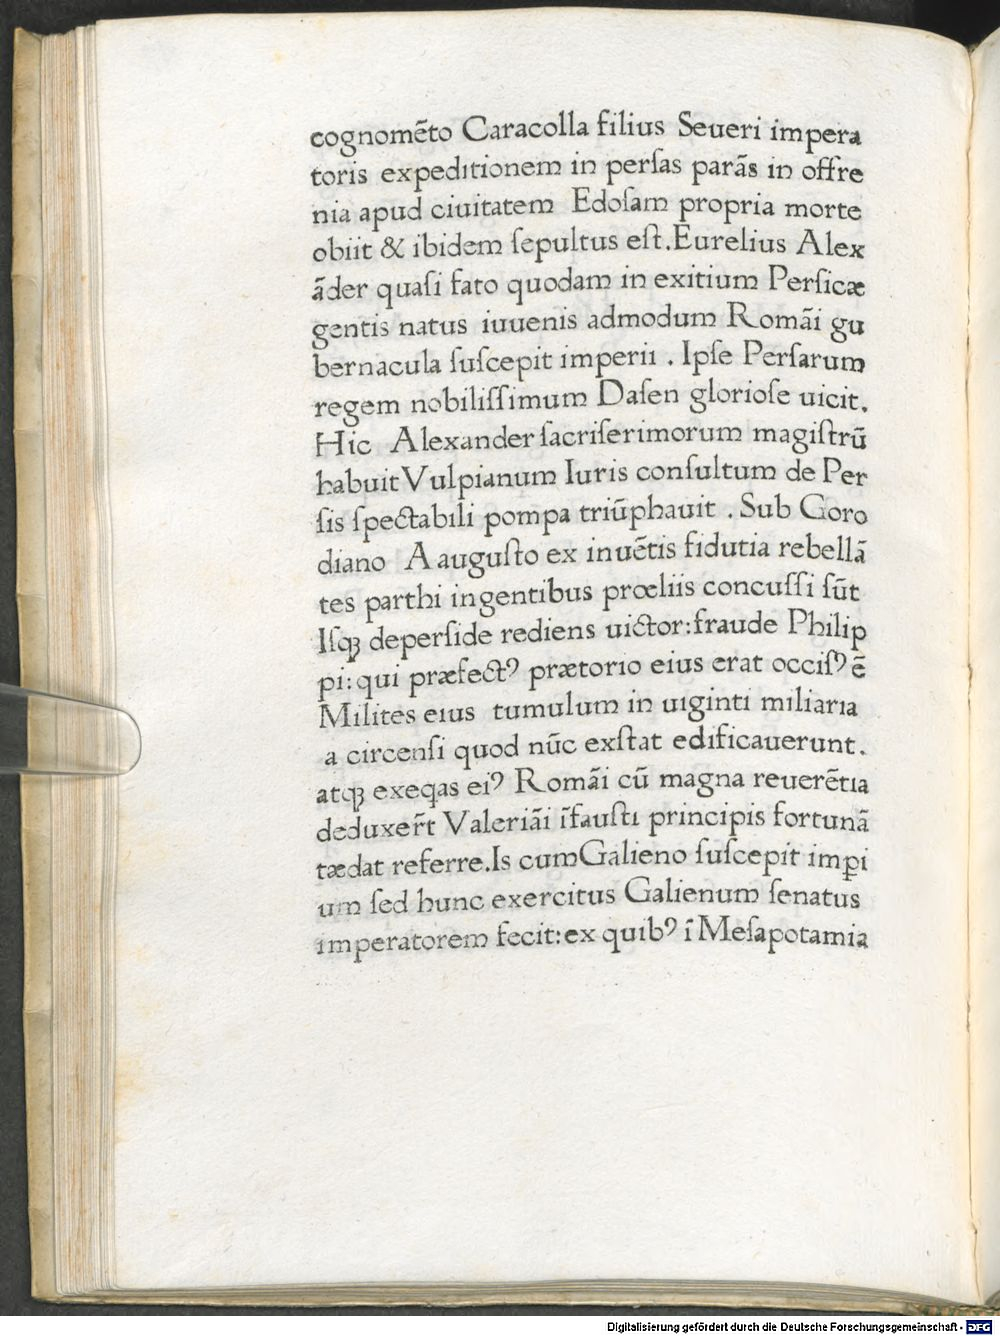 cognomẽto Caracolla filius Seueri impera
toris expeditionem in perſas parãs in offre
nia apud ciuitatem Edoſam propria morte
obiit & ibidem ſepultus eſt.Eurelius Alex
ãder quaſi fato quodam in exitium Perſicæ
gentis natus iuuenis admodum Romãi gu
bernacula ſuſcepit imperii . Ipſe Perſarum
regem nobiliſſimum Daſen glorioſe uicit.
Hic Alexander ſacriſerimorum magiſtrũ
habuit Vulpianum Iuris conſultum de Per
ſis ſpectabili pompa triũphauit . Sub Goro
diano A auguſto ex inuẽtis fidutia rebellã
tes parthi ingentibus prœliis concuſſi ſũt
Iſqꝫ deperſide rediens uictor:fraude Philip
pi:qui præfectꝰ prætorio eius erat occiſꝰ ẽ
Milites eius tumulum in uiginti miliaria
a circenſi quod nũc exſtat edificauerunt.
atqꝫ exeqas eiꝰ Romãi cũ magna reuerẽtia
deduxer̃t Valeriãi ĩfauſti principis fortunã
tædat referre.Is cumGalieno ſuſcepit imꝑi
um ſed hunc exercitus Galienum ſenatus
imperatorem fecit:ex quibꝰ ĩ Meſapotamia
Digitalisierung gefördert durch die Deutsche Forschungsgemeinschaft - DFG